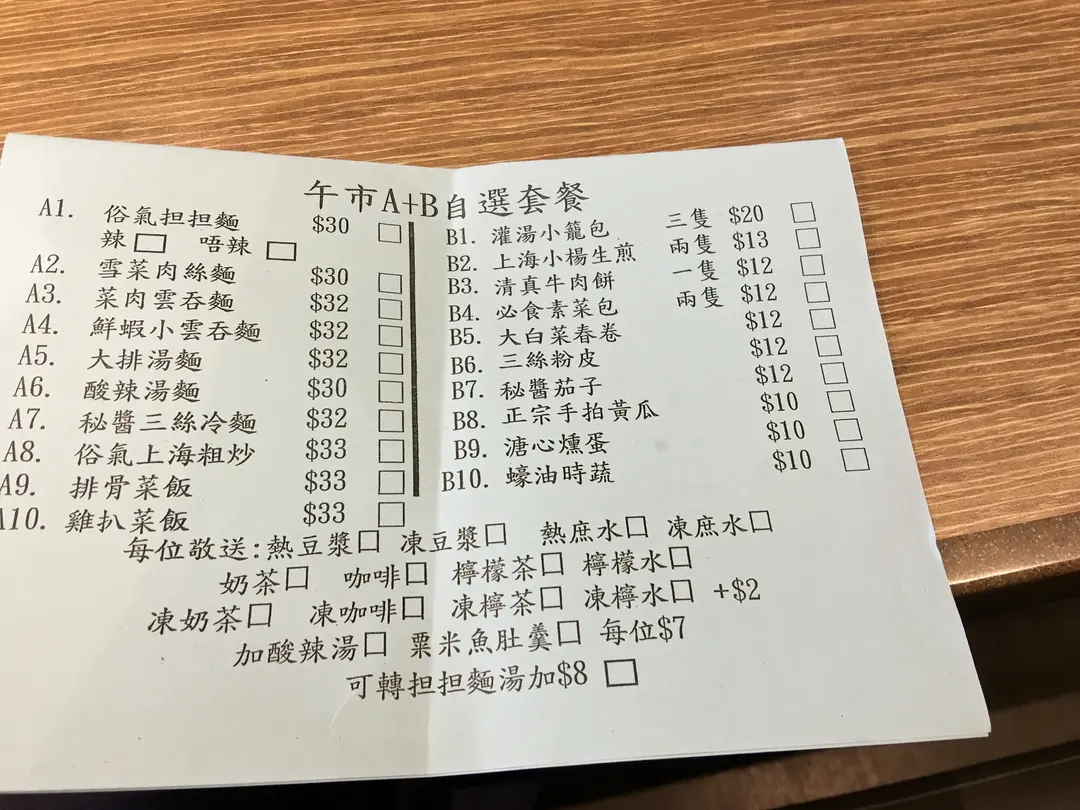 午市A+B自選套餐
A1. 俗氣担担麵 $30 □
辣□ 唔辣□
A2. 雪菜肉絲麵 $30 □
A3. 菜肉雲吞麵 $32 □
A4. 鮮蝦小雲吞麵 $32 □
A5. 大排湯麵 $32 □
A6. 酸辣湯麵 $30 □
A7. 秘醬三絲冷麵 $32 □
A8. 俗氣上海粗炒 $33 □
A9. 排骨菜飯 $33 □
A10. 雞扒菜飯 $33 □
B1. 灌湯小籠包 三隻 $20 □
B2. 上海小楊生煎 兩隻 $13 □
B3. 清真牛肉餅 一隻 $12 □
B4. 必食素菜包 兩隻 $12 □
B5. 大白菜春卷 $12 □
B6. 三絲粉皮 $12 □
B7. 秘醬茄子 $12 □
B8. 正宗手拍黃瓜 $10 □
B9. 溏心燻蛋 $10 □
B10. 蠔油時蔬 $10 □
每位敬送:熱豆漿□ 凍豆漿□ 熱庶水□ 凍庶水□
奶茶□ 咖啡□ 檸檬茶□ 檸檬水□
凍奶茶□ 凍咖啡□ 凍檸茶□ 凍檸水□ +$2
加酸辣湯□ 粟米魚肚羹□ 每位$7
可轉担担麵湯加$8 □